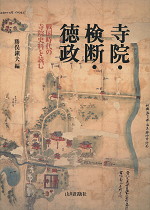 寺院・
検断・
徳政
戦国時代の
寺院史料を読む
勝俣鎮夫 編
山川出版社